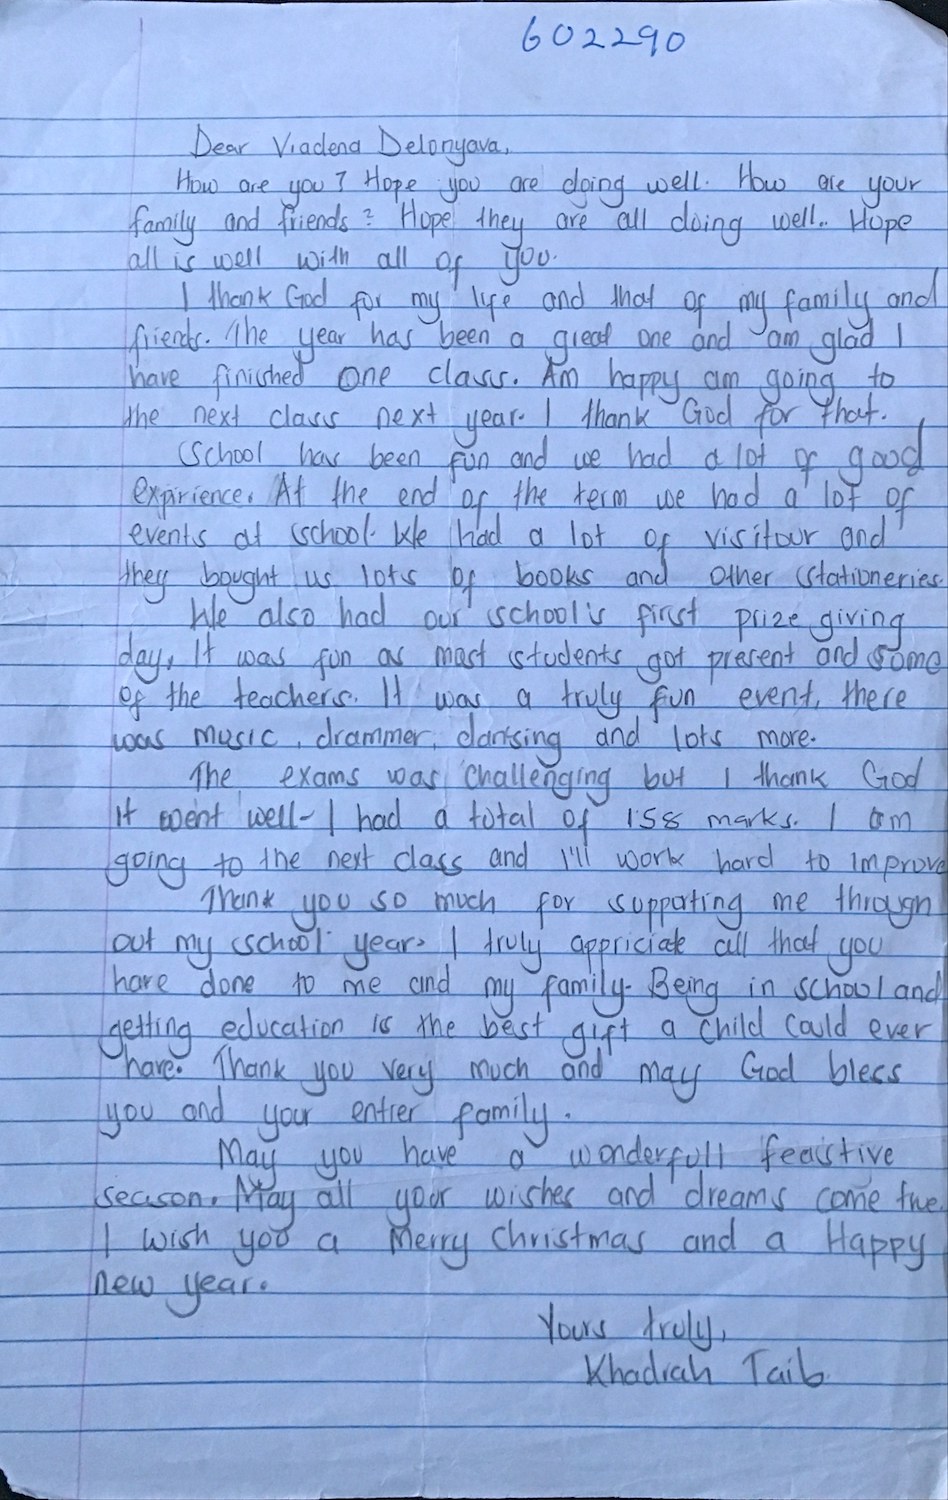 602290
Dear Viadena Delonyava,
How are you? Hope you are doing well. How are your
family and friends? Hope they are all doing well.. Hope
all is well with all of you.
I thank God for my life and that of my family and
friends. The year has been a great one and am glad I
have finished one class. Am happy am going to
the next class next year. I thank God for that.
School has been fun and we had a lot of good
expirience. At the end of the term we had a lot of
events at school. We had a lot of visitour and
they bought us lots of books and other stationeries
We also had our school's first prize giving
day. It was fun as most students got present and some
of the teachers. It was a truly fun event, there
was music, drammer, dantsing and lots more.
The exams was challenging but I thank God
It went well- I had a total of 158 marks. I am
going to the next class and I'll work hard to improve
Thank you so much for supporting me through
out my school year. I truly appriciate all that you
have done to me and my family. Being in school and
getting education is the best gift a child could ever
have. Thank you very much and may God bless
you and your entier family.
May you have a wonderfull feastive
season. May all your wishes and dreams come true
I wish you a Merry Christmas and a Happy
new year.
Yours truly,
Khadiah Taib